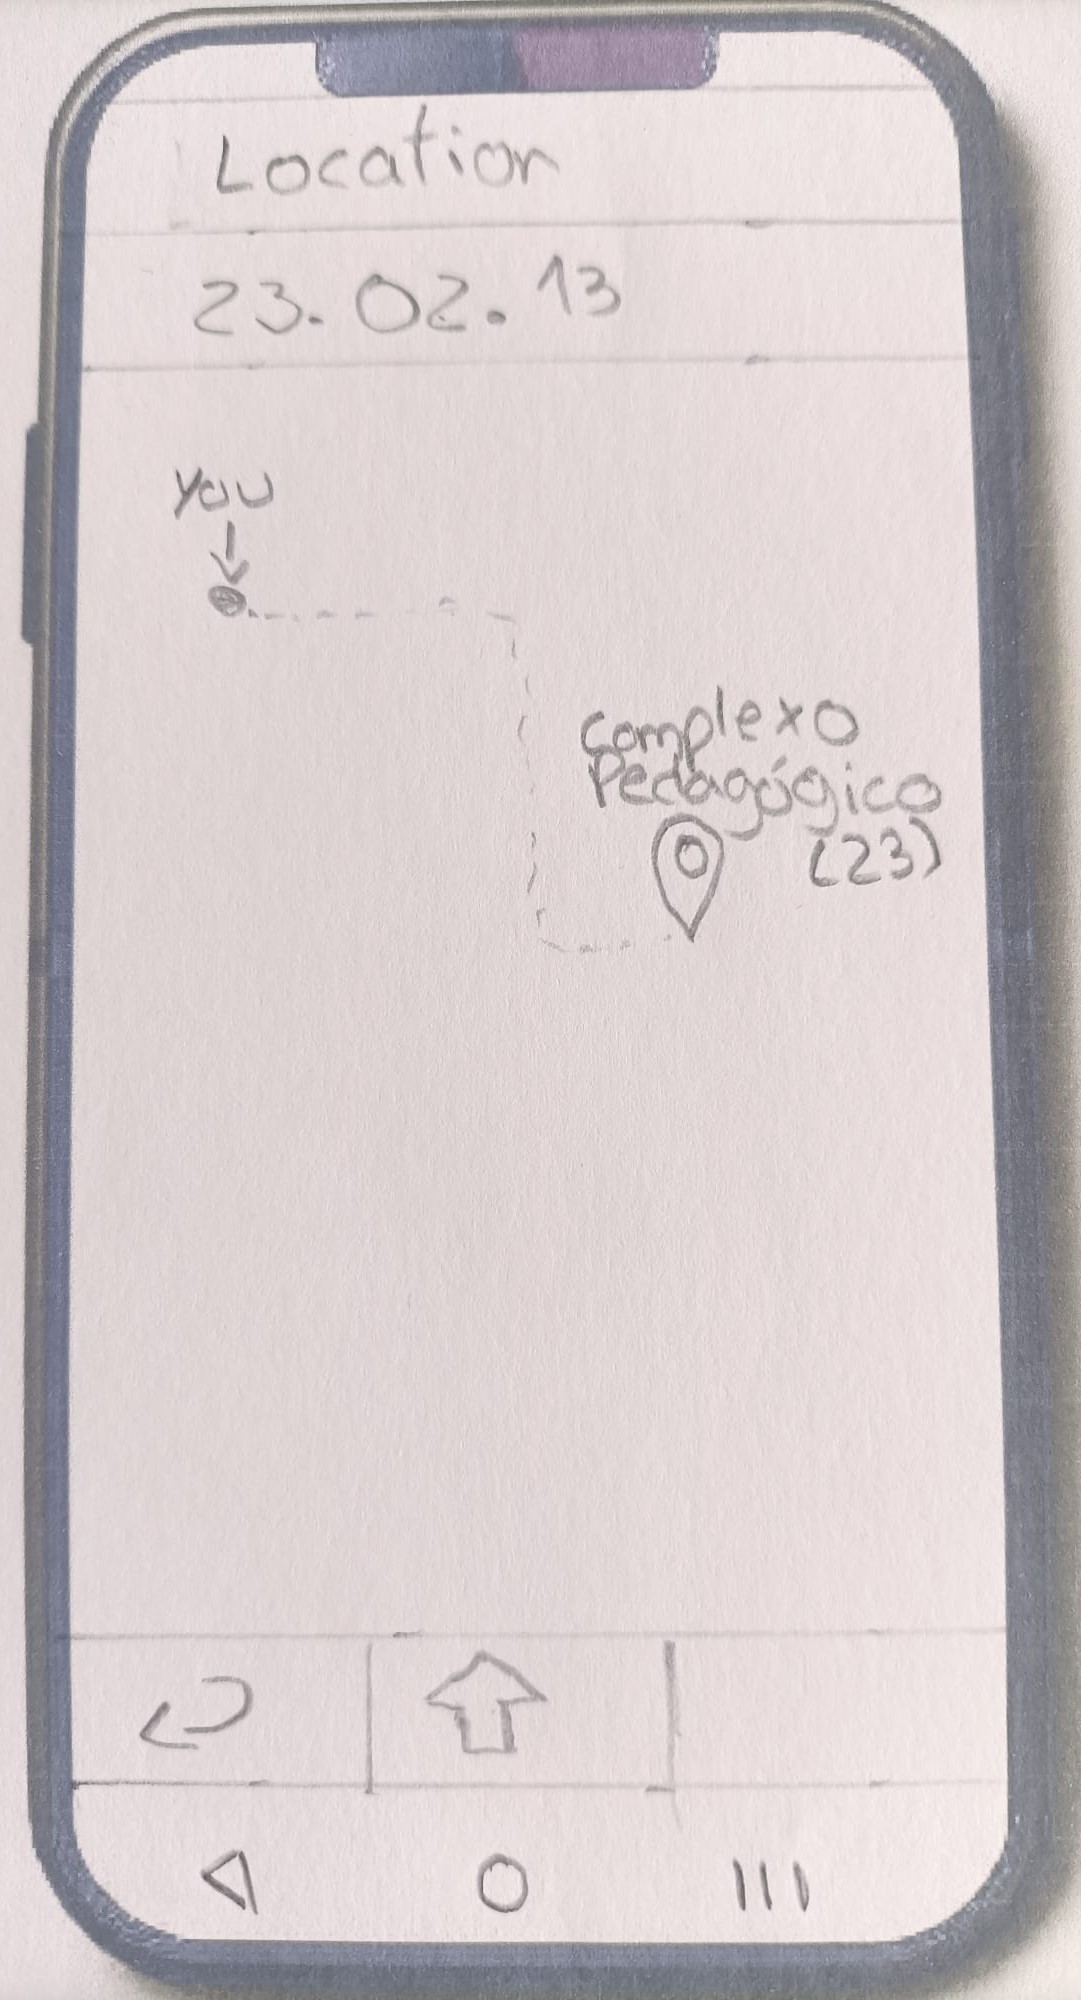 Location
23.02.13
You
Complexo
Pedagógico
(23)